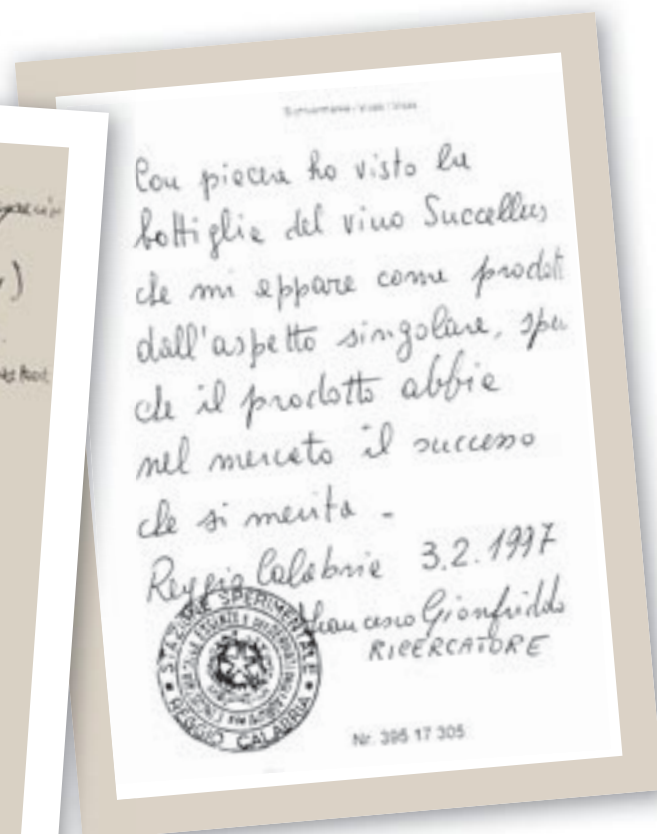 Con piacere ho visto la
bottiglia del vino Succellus
che mi appare come prodott
dall'aspetto singolare, spe
che il prodotto abbia
nel mercato il successo
che si merita -
Reggio Calabria 3.2.1997
Francesco Gionfriddo
RICERCATORE
STAZIONE SPERIMENTALE
REGGIO CALABRIA
Nr. 395 17 305